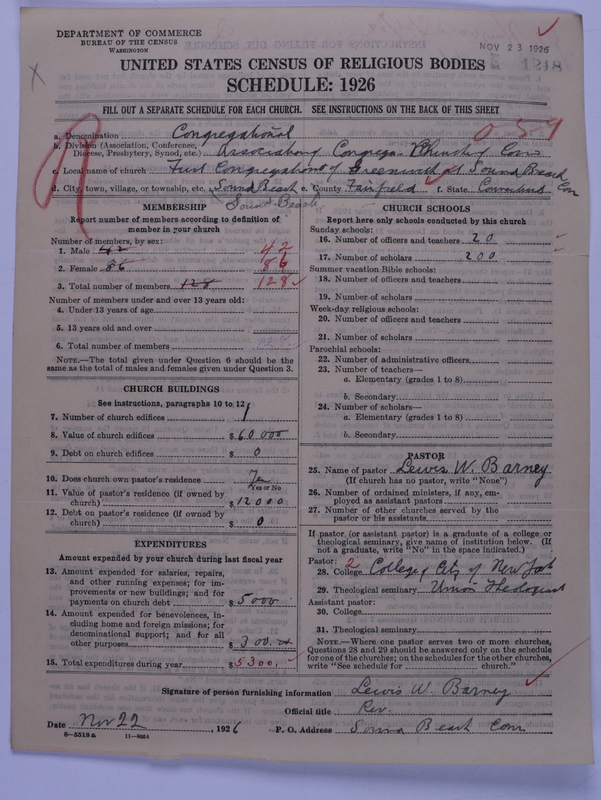 DEPARTMENT OF COMMERCE
BUREAU OF THE CENSUS
WASHINGTON
NOV 23 1926
1218
UNITED STATES CENSUS OF RELIGIOUS BODIES
SCHEDULE: 1926
FILL OUT A SEPARATE SCHEDULE FOR EACH CHURCH. SEE INSTRUCTIONS ON THE BACK OF THIS SHEET
a. Denomination Congregational 0-5-9
b. Division (Association, Conference, Diocese, Presbytery, Synod, etc.) Association of Congrega. Church of Conn
c. Local name of church First Congregational of Greenwich at Sound Beach Con
d. City, town, village, or township, etc. Sound Beach e. County Fairfield f. State Connecticut
Sound Beach
MEMBERSHIP
Report number of members according to definition of member in your church
Number of members, by sex:
1. Male 42 42
2. Female 86 86
3. Total number of members 128 128
Number of members under and over 13 years old:
4. Under 13 years of age
5. 13 years old and over
6. Total number of members
NOTE.—The total given under Question 6 should be the same as the total of males and females given under Question 3.
CHURCH BUILDINGS
See instructions, paragraphs 10 to 12
7. Number of church edifices 1
8. Value of church edifices $ 60000
9. Debt on church edifices $ 0
10. Does church own pastor's residence Yes
Yes or No
11. Value of pastor's residence (if owned by church) $ 12000
12. Debt on pastor's residence (if owned by church) $ 0
EXPENDITURES
Amount expended by your church during last fiscal year
13. Amount expended for salaries, repairs, and other running expenses; for improvements or new buildings; and for payments on church debt $ 5000
14. Amount expended for benevolences, including home and foreign missions; for denominational support; and for all other purposes $ 300.
15. Total expenditures during year $ 5300.
CHURCH SCHOOLS
Report here only schools conducted by this church
Sunday schools:
16. Number of officers and teachers 20
17. Number of scholars 200
Summer vacation Bible schools:
18. Number of officers and teachers
19. Number of scholars
Week-day religious schools:
20. Number of officers and teachers
21. Number of scholars
Parochial schools:
22. Number of administrative officers
23. Number of teachers—
a. Elementary (grades 1 to 8)
b. Secondary
24. Number of scholars—
a. Elementary (grades 1 to 8)
b. Secondary
PASTOR
25. Name of pastor Lewis W. Barney
(If church has no pastor, write "None")
26. Number of ordained ministers, if any, employed as assistant pastors
27. Number of other churches served by the pastor or his assistants
If pastor (or assistant pastor) is a graduate of a college or theological seminary, give name of institution below. (If not a graduate, write "No" in the space indicated.)
Pastor: 2
28. College College of City of New York
29. Theological seminary Union Theological
Assistant pastor:
30. College
31. Theological seminary
NOTE.—Where one pastor serves two or more churches, Questions 28 and 29 should be answered only on the schedule for one of the churches; on the schedules for the other churches, write "See schedule for church."
Signature of person furnishing information Lewis W. Barney
Official title Rev.
Date Nov 22, 1926 P. O. Address Sound Beach Conn
8-5518a 11-9054